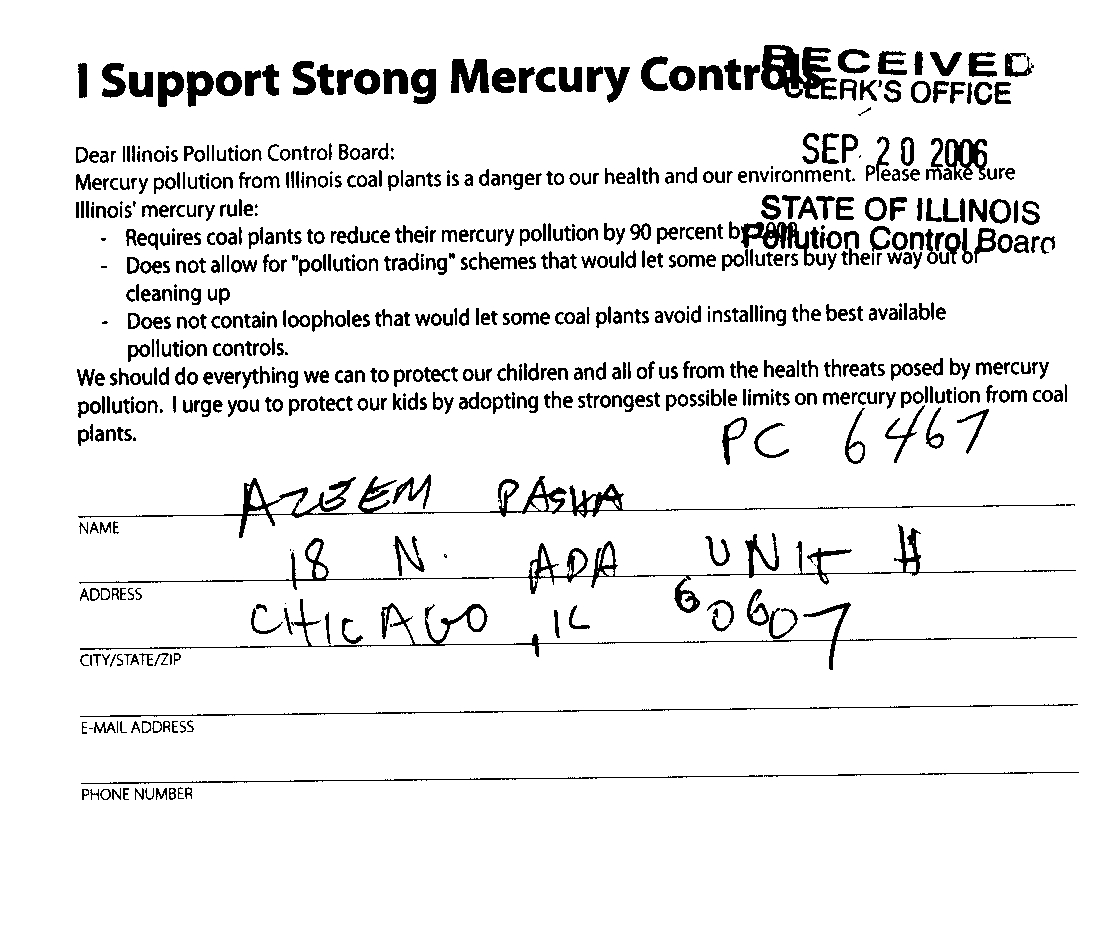 I Support Strong Mercury Controls
RECEIVED
CLERK'S OFFICE
SEP. 20 2006
STATE OF ILLINOIS
Pollution Control Board
Dear Illinois Pollution Control Board:
Mercury pollution from Illinois coal plants is a danger to our health and our environment. Please make sure
Illinois' mercury rule:
- Requires coal plants to reduce their mercury pollution by 90 percent by
- Does not allow for "pollution trading" schemes that would let some polluters buy their way out of
cleaning up
- Does not contain loopholes that would let some coal plants avoid installing the best available
pollution controls.
We should do everything we can to protect our children and all of us from the health threats posed by mercury
pollution. I urge you to protect our kids by adopting the strongest possible limits on mercury pollution from coal
plants.
PC 6467
AZEEM PASHA
NAME
18 N. ADA UNIT H
ADDRESS
CHICAGO, IL 60607
CITY/STATE/ZIP
E-MAIL ADDRESS
PHONE NUMBER